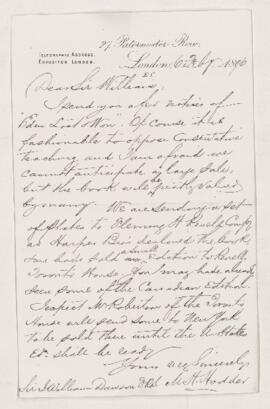 27 Paternoster Row,
TELEGRAPHIC ADDRESS.
EXPOSITOR LONDON.
London, 6 Feby 1896
EC
Dear Sir William,
I send you a few notices of
"Eden Lost & Won". Of course it is
fashionable to oppose Conservative
teaching and I am afraid we
cannot anticipate a large sale,
but the book will be greatly valued
by many. We are sending a set
of plates to Fleming H Revell Company
as Harper Bros declined the book,
We have sold an Edition to Revell's
Toronto House. You may have already
seen some of the Canadian Edition.
I expect Mr Robertson of the Toronto
House will send some to New York
to be sold there until the U States
Ed shall be ready
Yours very sincerely
Sir J William Dawson
M H Hodder